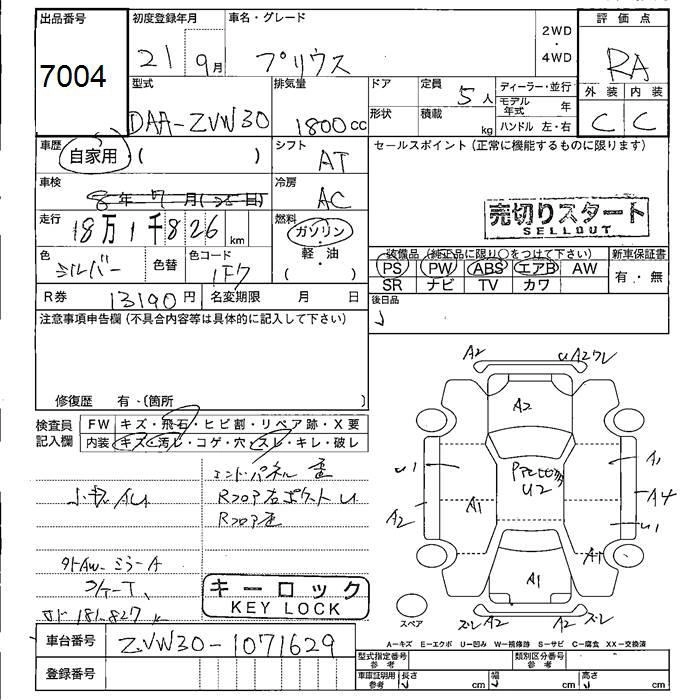 出品番号 初度登録年月 車名・グレード 2WD・4WD 評価点
7004 21 9月 プリウス RA
型式 排気量 ドア 定員 5人 ディーラー・並行 外装 内装
DAA-ZVW30 1800cc 形状 積載 kg モデル年式 年 C C
ハンドル 左・右
車歴 自家用・( ) シフト AT セールスポイント(正常に機能するものに限ります)
車検 冷房 AC
売切りスタート
SELLOUT
走行 18万1千826km 燃料 ガソリン・軽・油( )
色 シルバー 色替 色コード 1F7
装備品(純正品に限り○をつけて下さい) 新車保証書
PS PW ABS エアB AW 有・無
SR ナビ TV カワ
R券 13190円 名変期限 月 日 後日品
注意事項申告欄(不具合内容等は具体的に記入して下さい)
修復歴 有・(箇所 )
検査員記入欄 FW キズ・飛石・ヒビ割・リペア跡・X要
内装 キズ・汚レ・コゲ・穴・スレ・キレ・破レ
エンドパネル
小キズAU Rフロア右 U
Rフロア左
外AW-ミラーA
キーロック
KEY LOCK
181.827k
車台番号 ZVW30-1071629
登録番号
A2 UA2ワレ
A2
U1 A1
U2
A1 A4
A2 U1
A1
A1
スペア ズレ A2 A2 ズレ
A-キズ E-エクボ U-凹み W-補修跡 S-サビ C-腐食 XX-交換済
型式指定番号 参考 類別区分番号 参考
車庫証明用 参考 長さ cm 幅 cm 高さ cm